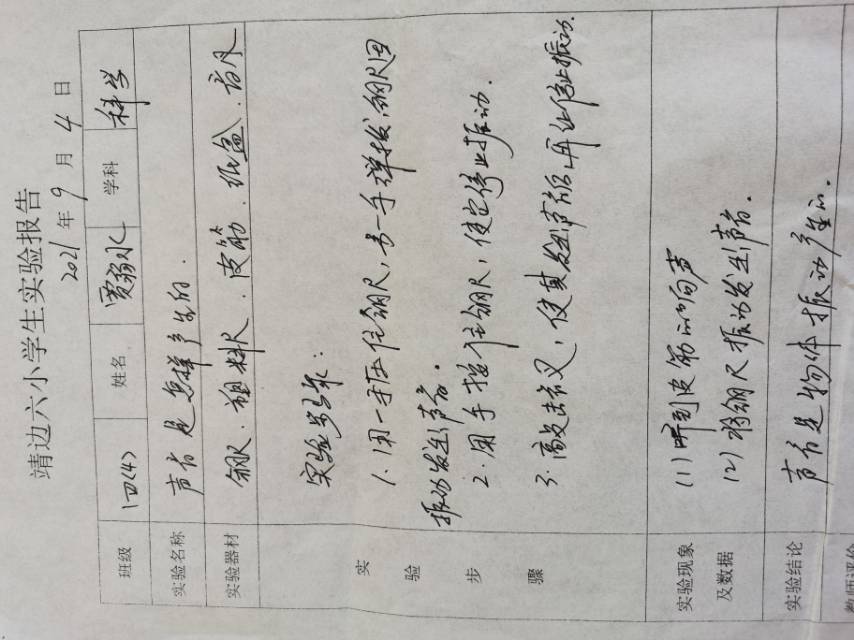 靖边六小学生实验报告
2021年9月4日
班级 四(4) 姓名 贾翦水 学科 科学
实验名称 声音是怎样产生的.
实验器材 钢尺、粗料尺、皮筋、纸盒、音叉
实验步骤
实验步骤:
1.用一手压住钢尺,另一手弹拨,钢尺因
振动发出声音.
2.用手按住钢尺,使它停止振动.
3.敲击音叉,使其发出声音后,再让停止振动.
实验现象及数据
(1)听到皮筋的响声
(2)将钢尺振动发出声音.
实验结论 声音是物体振动产生的.
教师评价